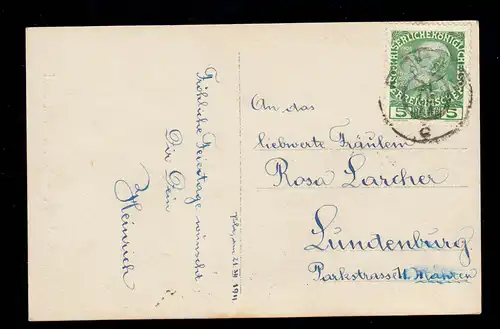 Fröhliche Feiertage wünscht
Dir Dein
Heinrich
21. XII 1911
An das
liebwerte Fräulein
Rosa Larcher
Lundenburg
Parkstrasse Mähren
KAISERLICHE KÖNIGLICHE
5 5